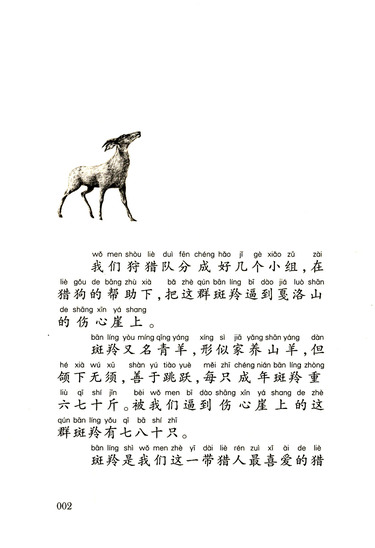 wǒ men shòu liè duì fēn chéng hǎo jǐ gè xiǎo zǔ zài
我们狩猎队分成好几个小组，在
liè gǒu de bāng zhù xià bǎ zhè qún bān líng bī dào jiá luò shān
猎狗的帮助下，把这群斑羚逼到戛洛山
de shāng xīn yá shang
的伤心崖上。
bān líng yòu míng qīng yáng xíng sì jiā yǎng shān yáng dàn
斑羚又名青羊，形似家养山羊，但
hé xià wú xū shàn yú tiào yuè měi zhī chéng nián bān líng zhòng
颌下无须，善于跳跃，每只成年斑羚重
liù qī shí jīn bèi wǒ men bī dào shāng xīn yá shang de zhè
六七十斤。被我们逼到伤心崖上的这
qún bān líng yǒu qī bā shí zhī
群斑羚有七八十只。
bān líng shì wǒ men zhè yí dài liè rén zuì xǐ ài de liè
斑羚是我们这一带猎人最喜爱的猎
002